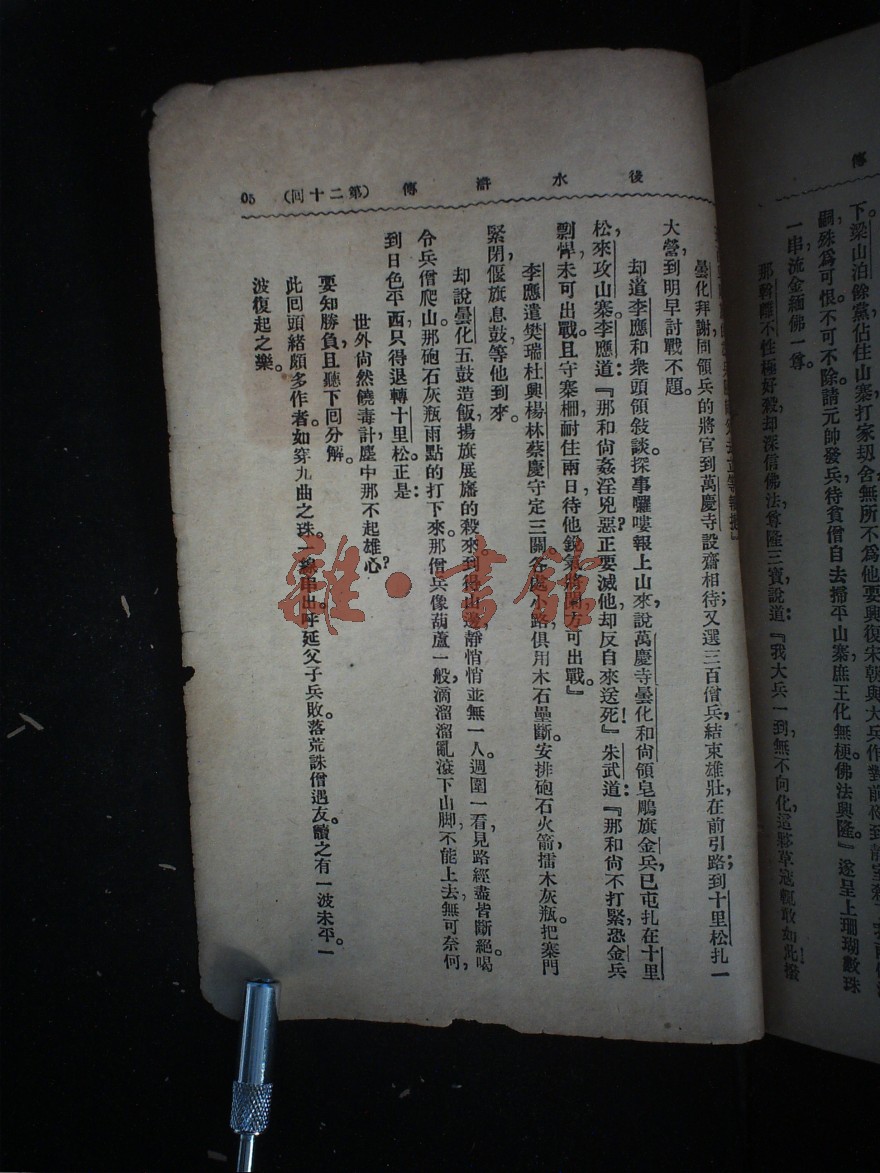 傳
下。梁山泊餘黨佔住山寨打家刧舍無所不爲他要興復宋朝與大兵作對前
嗣殊爲可恨不可不除請元帥發兵待貧僧自去掃平山寨庶王化無梗佛法興隆』遂呈上珊瑚數珠
一串流金緬佛一尊。
那幹離不性極好殺却深信佛法尊隆三寶說道：『我大兵一到，無不向化，這夥草寇輒敢如此
後水滸傳（第二十回）05
曇化拜謝同領兵的將官到萬慶寺設齋相待又選三百僧兵，結束雄壯，在前引路；到十里松扎一
大營，到明早討戰不題。
却道李應和衆頭領敍談。探事嘍囉報上山來，說萬慶寺曇化和尙領皂鵰旗金兵，已屯扎在十里
松，來攻山寨。李應道：『那和尙姦淫兇惡？正要滅他，却反自來送死！』朱武道：『那和尙不打緊，恐金兵
剽悍，未可出戰。且守寨柵，耐住兩日，待他銳氣將闌，方可出戰。』
李應遣樊瑞杜興楊林蔡慶守定三關，各處小路，俱用木石壘斷。安排砲石火箭，擂木灰瓶，把寨門
緊閉，偃旗息鼓，等他到來。
却說曇化五鼓造飯，揚旗展旛的殺來。到得山邊，靜悄悄並無一人。週圍一看，見路經盡皆斷絕。喝
令兵僧爬山。那砲石灰瓶雨點的打下來。那僧兵像葫蘆一般，滴溜溜亂滾下山脚，不能上去，無可奈何，
到日色平西，只得退轉十里松。正是：
世外尙然饒毒計塵中那不起雄心？
要知勝負，且聽下回分解。
此回頭緒頗多，作者如穿九曲之珠。一線串出。呼延父子兵敗落荒，誅僧遇友。讀之有一波未平。一
波復起之樂。